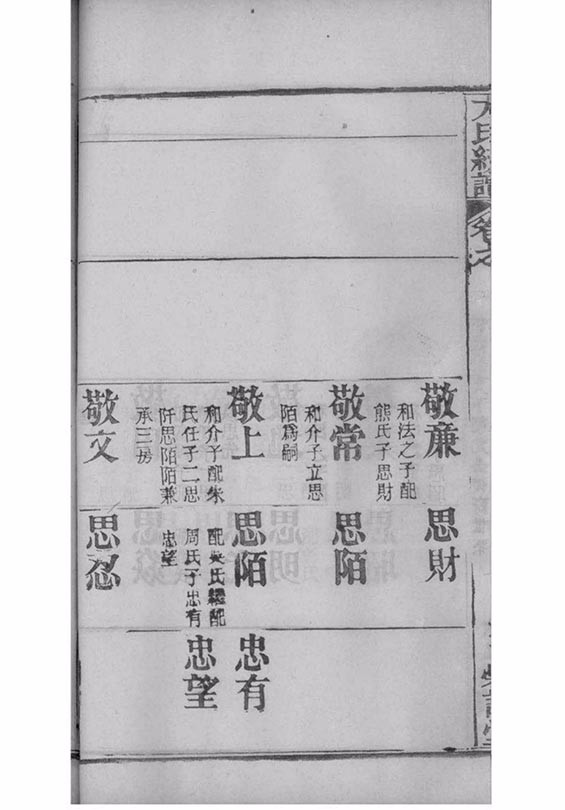 氏經譜
卷之
敬亷
和法之子配
熊氏子思財
思財
敬常
和介子立思
陌爲嗣
思陌
敬上
和介子配朱
氏任子二思
阡思陌陌兼
承三房
思陌
配吳氏繼配
周氏子忠有
忠望
忠有
忠望
敬文
思忍